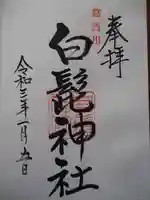 奉拝
白髭神社
令和三年一月五日